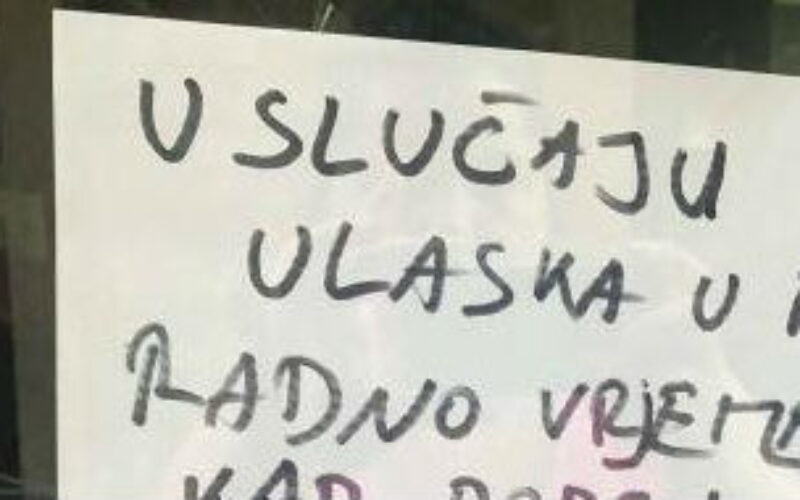 U SLUČAJU
ULASKA U
RADNO VRJEME
KAD